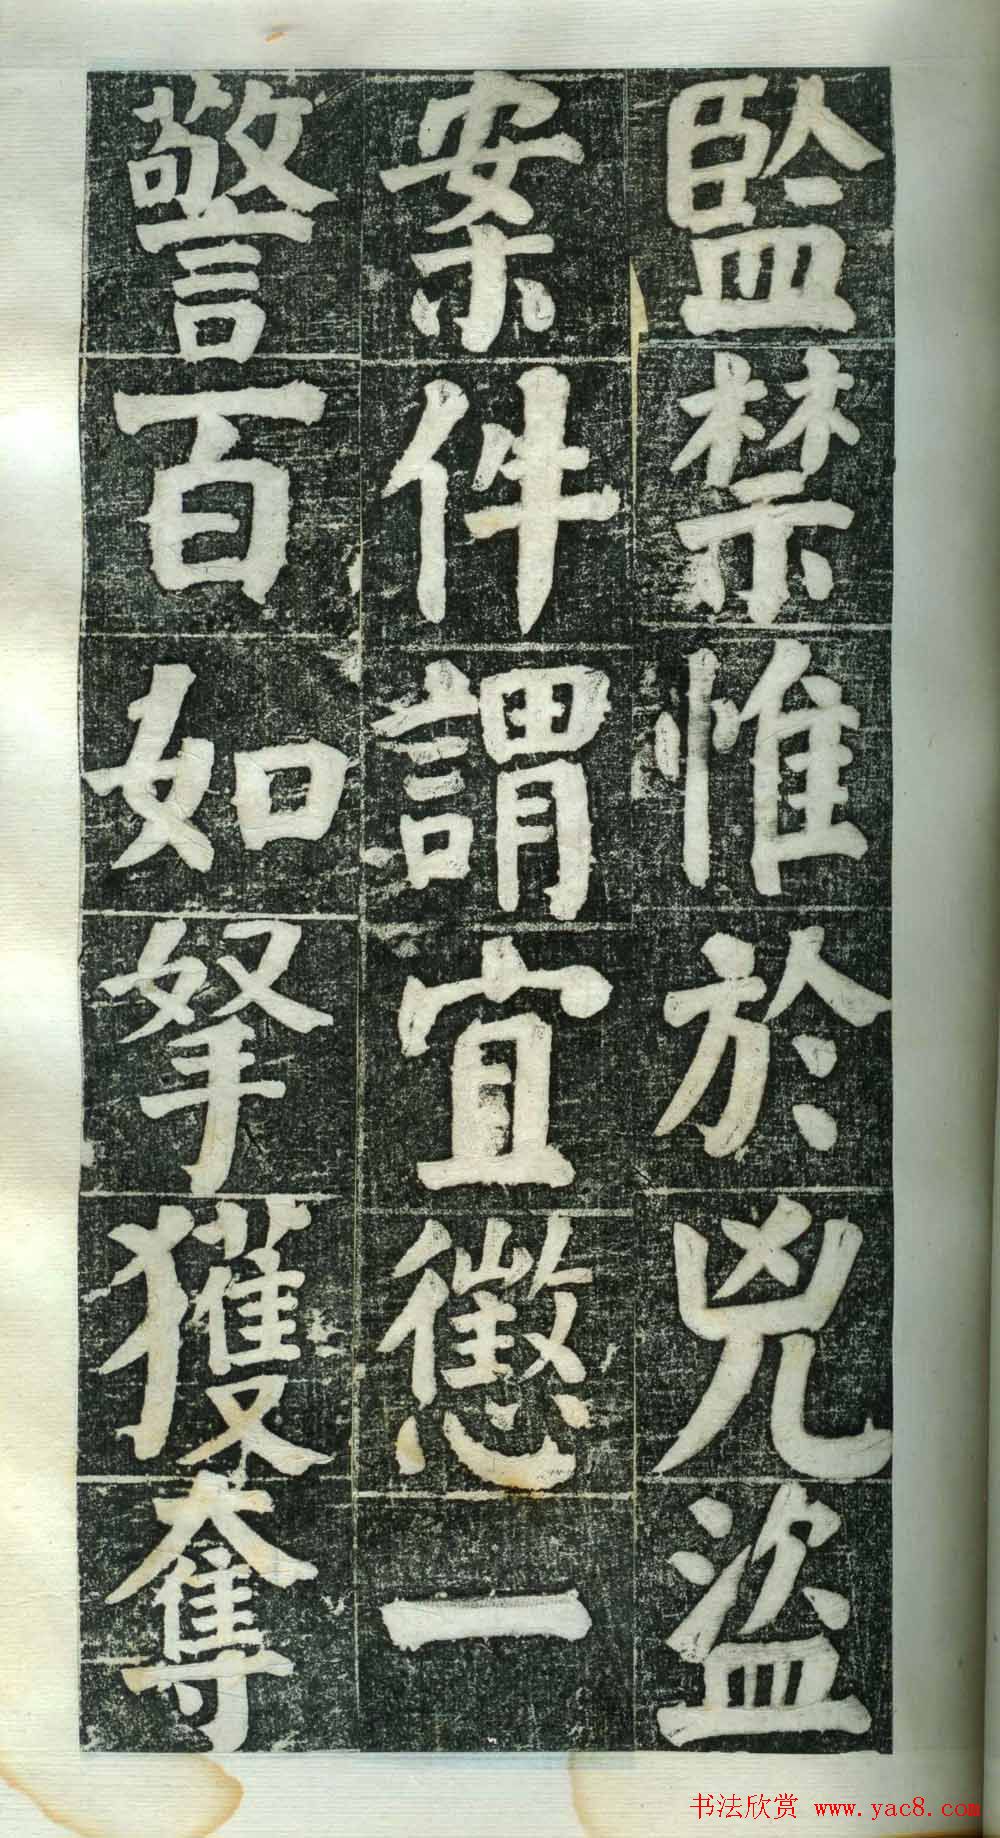 監禁惟於兇盜
案件謂宜懲一
警百如拏獲奪
书法欣赏 www.yac8.com